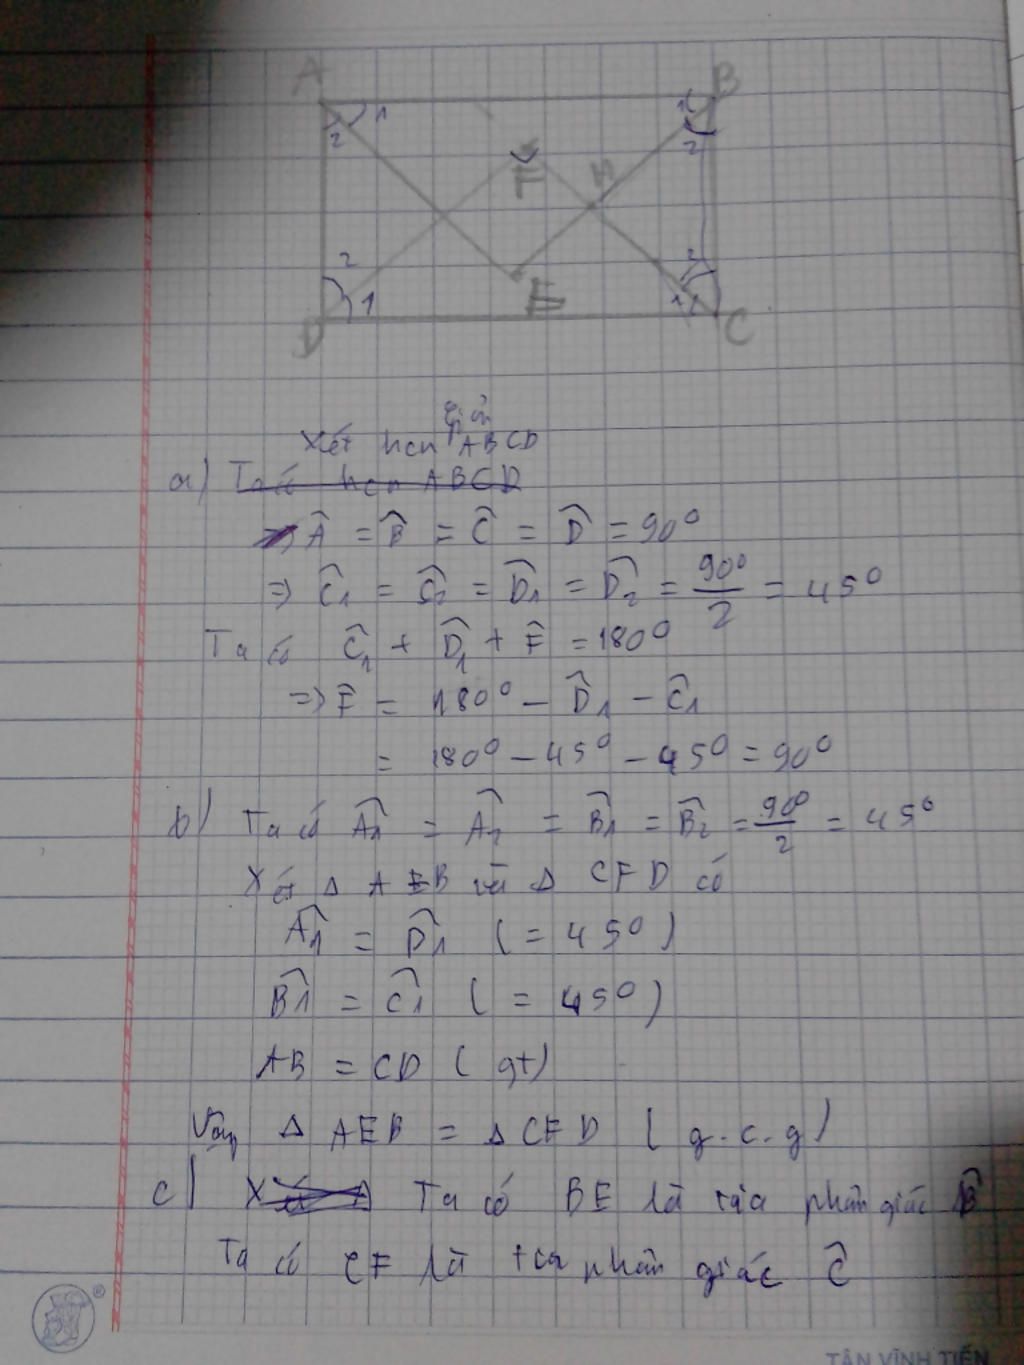 A
B
1
1
2
2
F
H
2
2
E
1
1
D
C
giản
Xét hcn ABCD
a) Ta có hcn ABCD
=> Â = B̂ = Ĉ = D̂ = 90⁰
=> Ĉ1 = Ĉ2 = D̂1 = D̂2 = 90⁰/2 = 45⁰
Ta có Ĉ1 + D̂1 + F̂ = 180⁰
=> F̂ = 180⁰ - D̂1 - Ĉ1
= 180⁰ - 45⁰ - 45⁰ = 90⁰
b) Ta có Â1 = Â2 = B̂1 = B̂2 = 90⁰/2 = 45⁰
Xét Δ AEB và Δ CFD có
Â1 = D̂1 (= 45⁰)
B̂1 = Ĉ1 (= 45⁰)
AB = CD (gt)
Vậy Δ AEB = Δ CFD (g.c.g)
c) Ta có BE là tia phân giác B̂
Ta có CF là tia phân giác Ĉ
®
TÂN VĨNH TIẾN